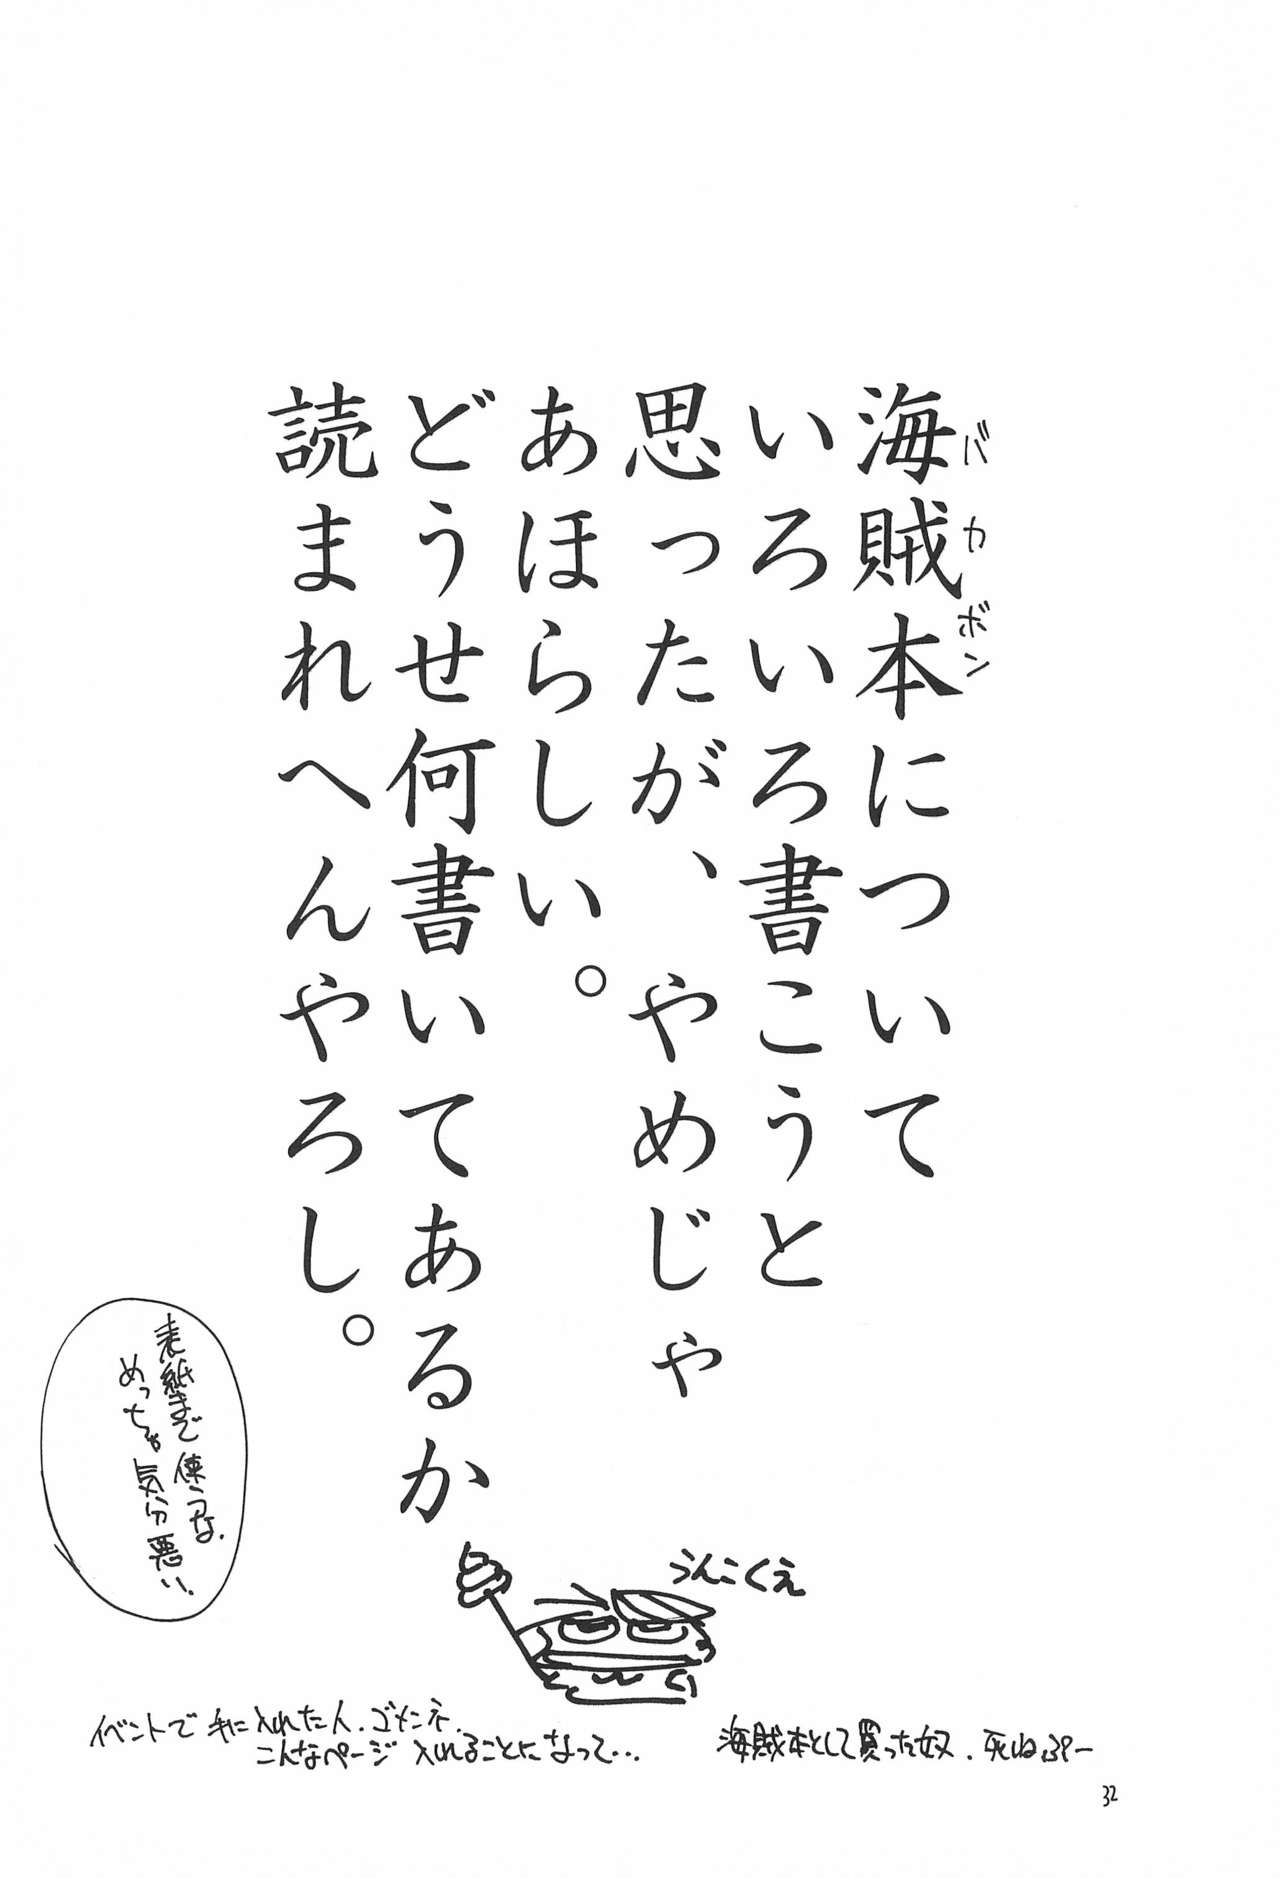 海賊本について
バカボン
いろいろ書こうと
思ったが、やめじゃ
あほらしい。
どうせ何書いてあるか
読まれへんやろし。
表紙まで使うな、
めっちゃ気分悪い。
うんこくえ
イベントで手に入れた人、ゴメンネ、
こんなページ入れることになって…
海賊本として買った奴、死ねぷー
32